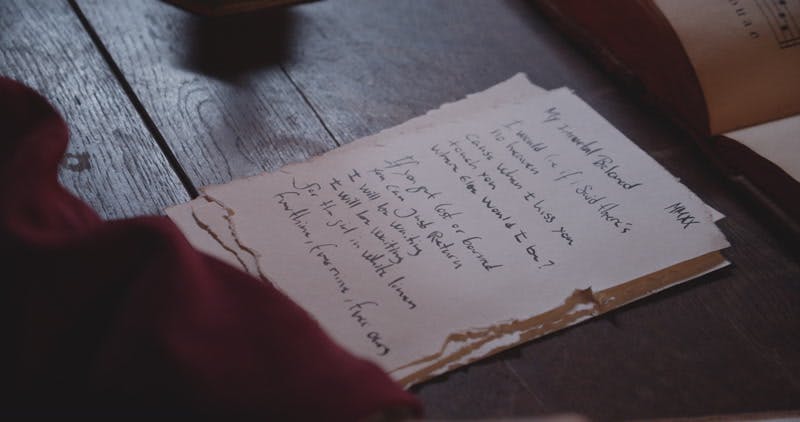 MMXX
My Immortal Beloved
I would lie if I said there's
no heaven
Cause when I kiss you
touch you
Where else would I be?
If you get lost or bound
You can Just Return
I will be waiting
I will be waiting
for the girl in white linen
ours